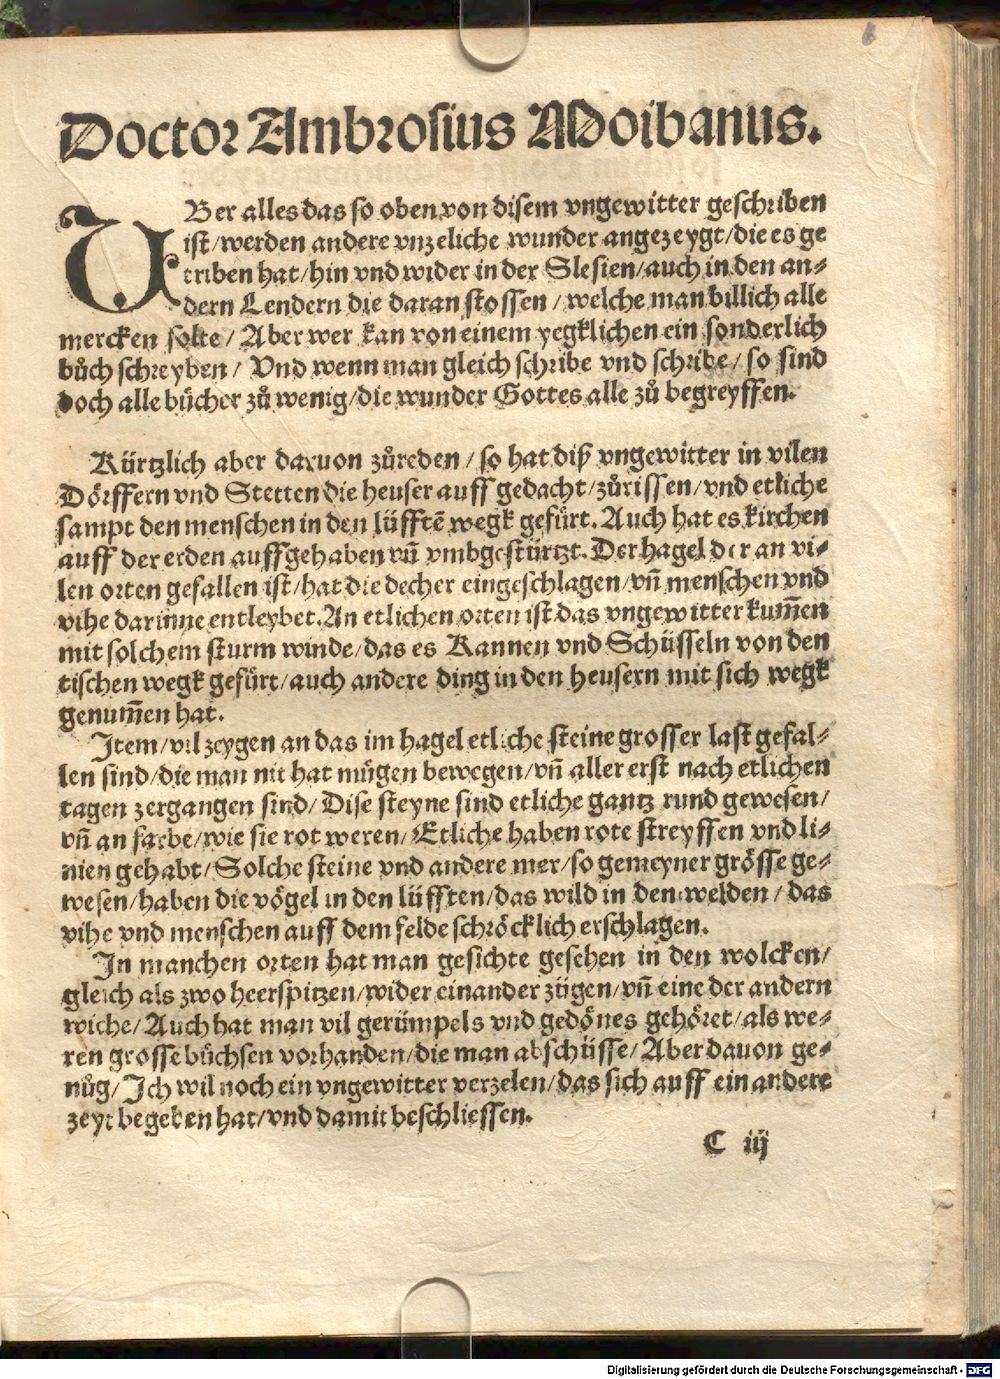 Doctor Ambrosius Moibanus.
UBer alles das so oben von disem vngewitter geschriben
ist/werden andere vnzeliche wunder angezeygt/die es ge
triben hat/hin vnd wider in der Slesien/auch in den an⸗
dern Lendern die daran stossen/welche man billich alle
mercken solte/Aber wer kan von einem yegklichen ein sonderlich
bůch schreyben/Vnd wenn man gleich schribe vnd schribe/so sind
doch alle bücher zů wenig/die wunder Gottes alle zů begreyffen.
Kürtzlich aber daruon zůreden/so hat diß vngewitter in vilen
Dörffern vnd Stetten die heuser auff gedacht/zůrissen/vnd etliche
sampt den menschen in den lüfftē wegk gefürt. Auch hat es kirchen
auff der erden auffgehaben vñ vmbgestürtzt. Der hagel der an vi⸗
len orten gefallen ist/hat die decher eingeschlagen/vñ menschen vnd
vihe darinne entleybet. An etlichen orten ist das vngewitter kum̃en
mit solchem sturm winde/das es Kannen vnd Schüsseln von den
tischen wegk gefürt/auch andere ding in den heusern mit sich wegk
genum̃en hat.
Item/vil zeygen an das im hagel etliche steine grosser last gefal⸗
len sind/die man nit hat mügen bewegen/vñ aller erst nach etlichen
tagen zergangen sind/Dise steyne sind etliche gantz rund gewesen/
vñ an farbe/wie sie rot weren/Etliche haben rote streyffen vnd li⸗
nien gehabt/Solche steine vnd andere mer/so gemeyner grösse ge⸗
wesen/haben die vögel in den lüfften/das wild in den welden/das
vihe vnd menschen auff dem felde schröcklich erschlagen.
In manchen orten hat man gesichte gesehen in den wolcken/
gleich als zwo heerspitzen/wider einander zügen/vñ eine der andern
wiche/Auch hat man vil gerümpels vnd gedönes gehöret/als we⸗
ren grosse büchsen vorhanden/die man abschüsse/Aber dauon ge⸗
nůg/Ich wil noch ein vngewitter verzelen/das sich auff ein andere
zeyt begeben hat/vnd damit beschliessen.
C iij
Digitalisierung gefördert durch die Deutsche Forschungsgemeinschaft - DFG